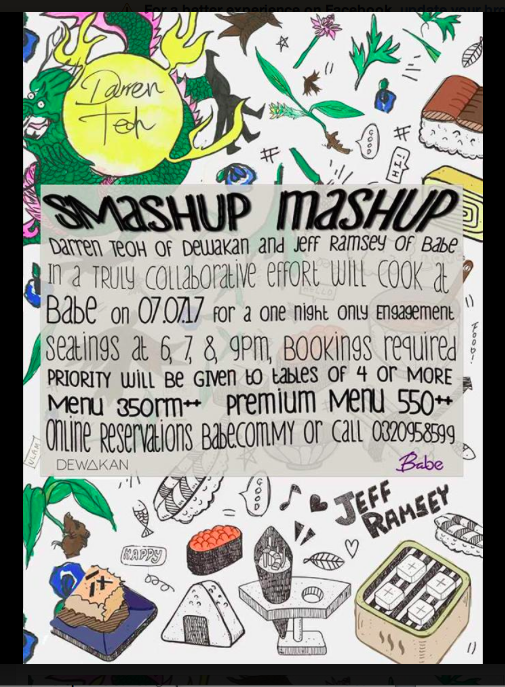 For a better experience on Facebook, update your
Darren
Teoh
GOOD
HI!
SMASHUP MASHUP
Darren Teoh of Dewakan and Jeff Ramsey of Babe
In a TRULY COLLABORATIVE EFFORT WILL COOK at
Babe on 07.07.17 for a one night only Engagement
seatings at 6, 7, 8, 9pm, BOOKINGS required
PRIORITY WILL BE GIVEN to tables of 4 OR MORE
Menu 350rm++ Premium Menu 550++
Online Reservations Babe.com.MY or call 0320958599
DEWAKAN
Babe
FOOD!
YUM!
GOOD
JEFF
RAMSEY
HAPPY